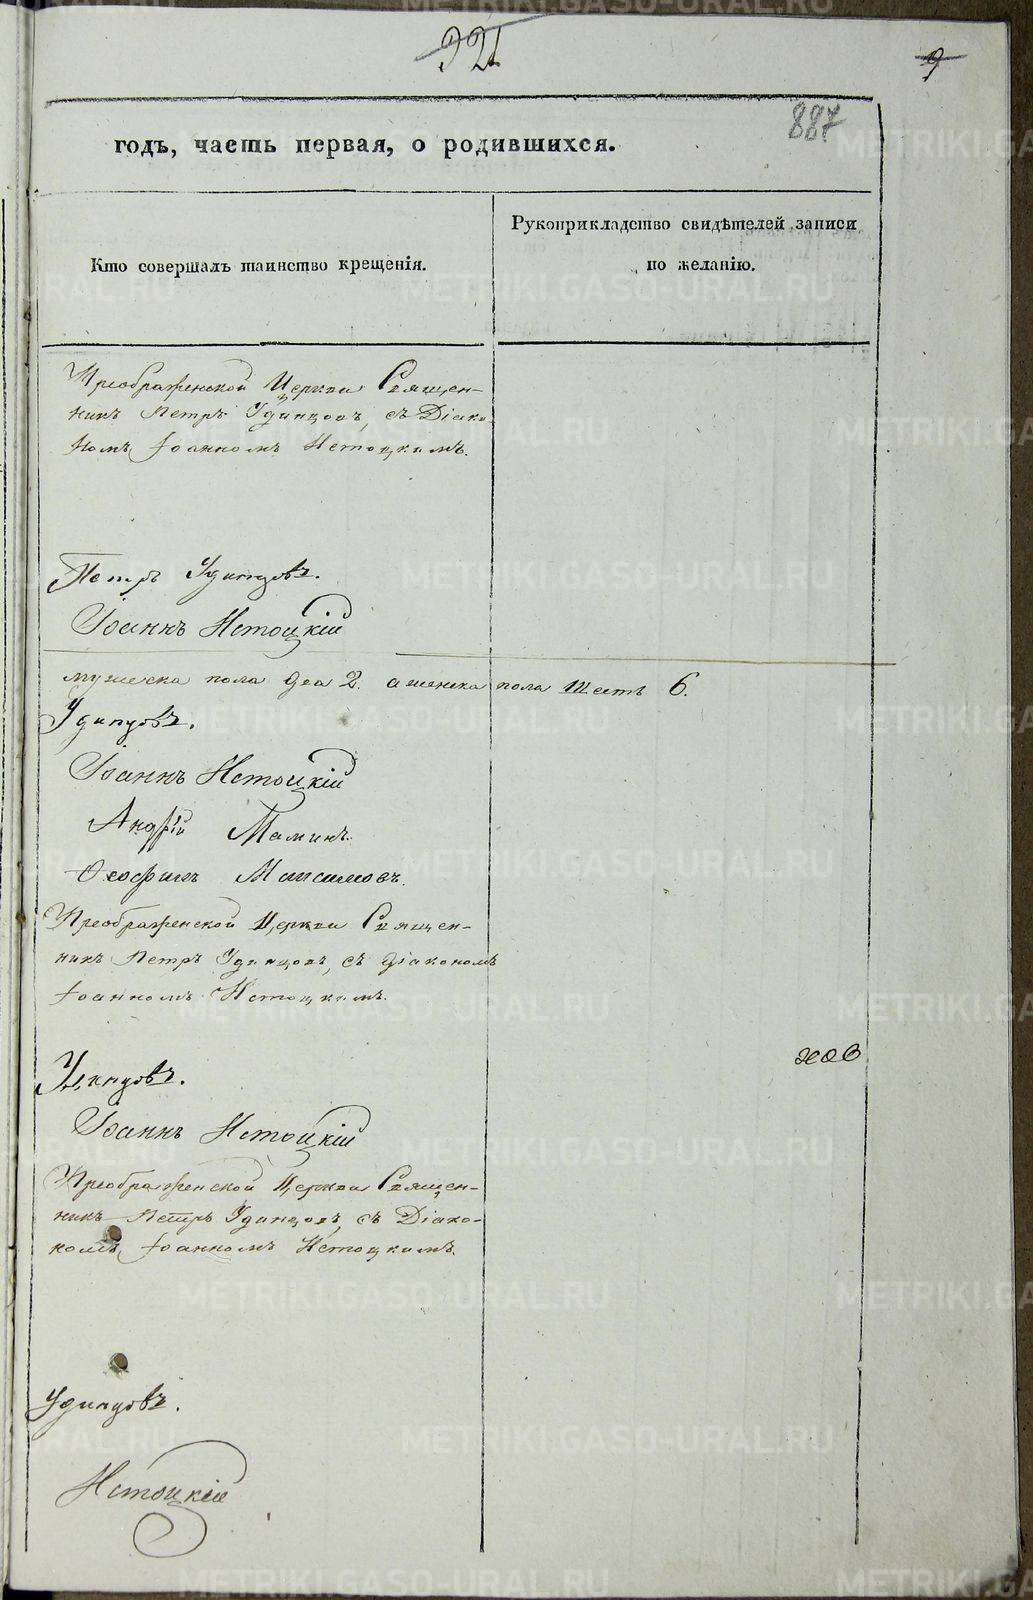 321
9
887
годъ, часть первая, о родившихся.
Кто совершалъ таинство крещенія.
Рукоприкладство свидѣтелей записи
по желанію.
Преображенской Церкви Священ-
никъ Петръ Удинцовъ, съ Діако-
номъ Іоанномъ Истоцкимъ.
Петръ Удинцовъ.
Іоаннъ Истоцкій
мужеска пола два 2. а женска пола шесть 6.
Удинцовъ.
Іоаннъ Истоцкій
Андрій Маминъ.
Ѳеофилъ Максимовъ.
Преображенской Церкви Священ-
никъ Петръ Удинцовъ, съ діакономъ
Іоанномъ Истоцкимъ.
Удинцовъ.
Іоаннъ Истоцкій
Преображенской Церкви Священ-
никъ Петръ Удинцовъ, съ Діако-
номъ Іоанномъ Истоцкимъ.
Удинцовъ.
Истоцкій
METRIKI.GASO-URAL.RU